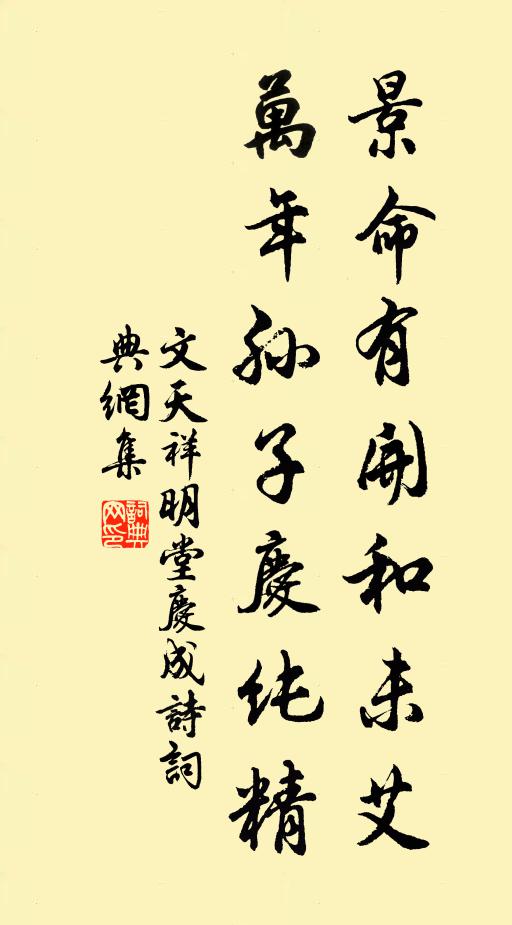 景命有開和未艾
萬年孫子慶純精
文天祥明堂慶成詩詞
典網集
詞典網印